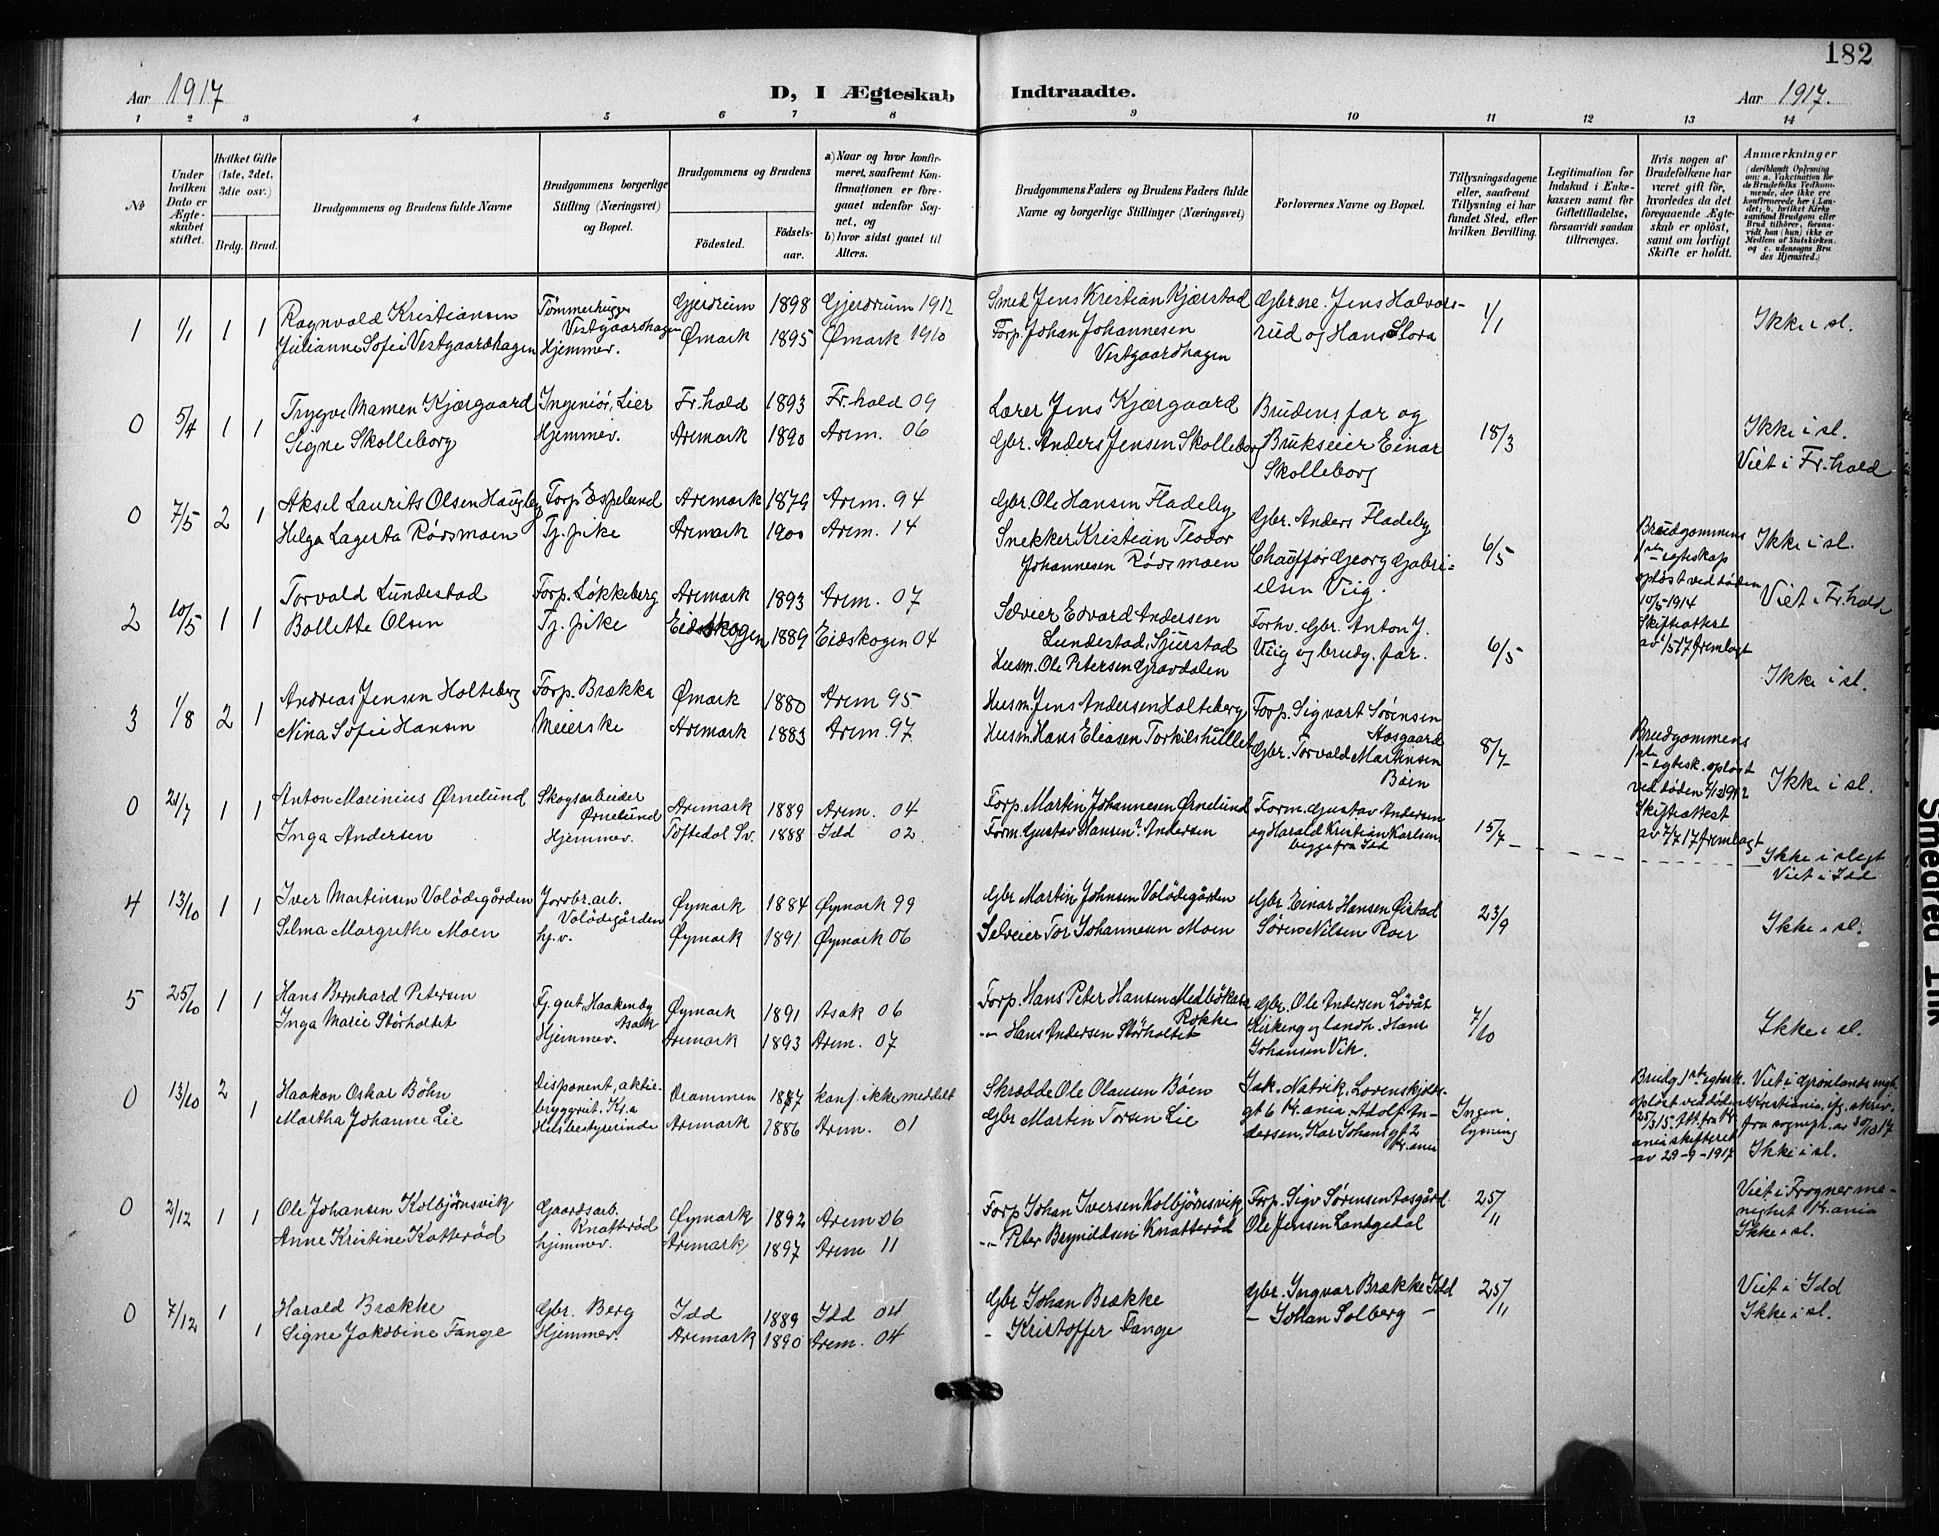 182
Aar 1917
D, I Ægteskab Indtraadte.
Aar 1917.
1 2 3 4 5 6 7 8 9 10 11 12 13 14
No
Under hvilken Dato er Ægteskabet stiftet.
Hvilket Gifte (1ste, 2det, 3die osv.)
Brdg. Brud.
Brudgommens og Brudens fulde Navne
Brudgommens borgerlige Stilling (Næringsvei) og Bopæl.
Brudgommens og Brudens
Födested.
Födselsaar.
a) Naar og hvor konfirmeret, saafremt Konfirmationen er foregaaet udenfor Sognet, og
b) hvor sidst gaaet til Alters.
Brudgommens Faders og Brudens Faders fulde Navne og borgerlige Stillinger (Næringsvei)
Forlovernes Navne og Bopæl.
Tillysningsdagene eller, saafremt Tillysning ei har fundet Sted, efter hvilken Bevilling.
Legitimation for Indskud i Enkekassen samt for Giftetilladelse, forsaavidt saadan tiltrænges.
Hvis nogen af Brudefolkene har været gift för, hvorledes da det foregaaende Ægteskab er oplöst, samt om lovligt Skifte er holdt.
Anmærkninger
(deriblandt Oplysning om: a. Vaccination for de Brudefolks Vedkommende, der ikke ere konfirmerede her i Landet; b. hvilket Kirkesamfund Brudgom eller Brud tilhörer, forsaavidt han (hun) ikke er Medlem af Statskirken, og c. udensogns Brudes Hjemsted.)
1 1/1 1 1 Ragnvald Kristiansen Tømmerhugger Vestgaardhagen Gjerdrum 1898 Gjerdrum 1912 Smed Jens Kristian Kjærstad Gbrne. Jens Halvors- 1/1 Ikke i sl.
Julianne Sofie Vestgaardhagen Hjemmev. Ømark 1895 Ømark 1910 Forp. Johan Johannesen Vestgaardhagen rud og Hans Slora
0 5/4 1 1 Trygve Mamen Kjærgaard Ingeniør, Lier Fr.hald 1893 Fr.hald 09 Lærer Jens Kjærgaard Brudens far og 18/3 Ikke i sl.
Signe Skolleborg Hjemmev. Aremark 1890 Arem. 06 Gbr. Anders Jensen Skolleborg Brukseier Einar Skolleborg Viet i Fr.hald
0 7/5 2 1 Aksel Laurits Olsen Haugby Forp. Espelund Aremark 1879 Arem. 94 Gbr. Ole Hansen Fladeby Gbr. Anders Fladeby 6/5 Brudgommens 1ste egteskap opløst ved døden 10/5 1914 Skifteattest av 1/5 17 fremlagt Ikke i sl.
Helga Lagerta Rødsmoen Tj.pike Aremark 1900 Arem. 14 Snekker Kristian Teodor Johannesen Rødsmoen Chauffør Georg Gabri- elsen Viig. Viet i Fr.hald
2 10/5 1 1 Torvald Lundestad Forp. Løkkeberg Aremark 1893 Arem. 07 Selveier Edvard Andersen Lundestad, Forhv. Gbr. Anton J. 6/5 Ikke i sl.
Bollette Olsen Tj.pike Eidskogen 1889 Eidskogen 04 Husm. Ole Petersen Viig og brudg. far.
3 1/8 2 1 Andreas Jensen Holteberg Forp. Brække Ømark 1880 Arem 95 Husm. Jens Andersen Holteberg Forp. Sigvart Sørensen Aasgaard 8/7 Brudgommens 1ste egtesk. opløst ved døden Skifteattest av 7/7 17 fremlagt Ikke i sl.
Nina Sofie Hansen Meierske Aremark 1883 Arem. 97 Husm. Hans Eliasen Torkilshullet Gbr. Torvald Martinsen Bøen
0 21/7 1 1 Anton Marinius Ørnelund Skogsarbeider Ørnelund Aremark 1889 Arem. 04 Forp. Martin Johannesen Ørnelund Form. Gustav Andersen 15/7 Ikke i slegt
Inga Andersen Hjemmev. Töftedal Sv. 1888 Idd 02 Form. Gustav Hansen? Andersen og Harald Kristian Karlsen begge fra Idd Viet i Idd
4 13/10 1 1 Iver Martinsen Volödegården Jordbr.arb. Volödegården Øymark 1884 Øymark 99 Gbr Martin Johnsen Volödegården Gbr. Einar Hansen Øistad 23/9 Ikke i sl.
Selma Margrethe Moen hj.v. Øymark 1891 Øymark 06 Selveier Tor Johannesen Moen Søren Nilsen Roer
5 25/10 1 1 Hans Bernhard Petersen Tj.gut Haakenby Asak Øymark 1891 Asak 06 Forp. Hans Peter Hansen Rokke Gbr. Ole Andersen Lövås 7/10 Ikke i sl.
Inga Marie Störholtet Hjemmev. Aremark 1893 Arem. 07 -"- Hans Andersen Störholtet Kirkeng og landh. Hans Johansen Vik.
0 13/10 2 1 Haakon Oskar Bøhn Disponent, aktie- bryggeri. Kr.a Drammen 1877 konf. ikke meddelt Skrædde Ole Olausen Bøen Jak. Natvik, Lovenskjolds- gt 6 Kr.ania. Ingen lysning Brudg. 1ste egtesk. opløst ved døden 25/3 15. Att. fra Kr.ania skifteret av 29-9-1917 Viet i Grønlands mght. Kristiania, ifg. skriv. fra sognepr. av 30/10 17
Martha Johanne Lie Husbestyrerinde Aremark 1886 Arem. 01 Gbr Martin Torsen Lie Adolf An- dersen, Karl Johans gt 2 Kr.ania Ikke i sl.
0 2/12 1 1 Ole Johansen Kolbjørnsvik Gaardsarb. Knatterød Øymark 1892 Arem 06 Forp Johan Iversen Kolbjørnsvik Forp. Sigv Sørensen Aasgård 25/11 Viet i Frogner me- nighet Kr.ania
Anne Kristine Katterød hjemmev. Aremark 1897 Arem 11 -"- Peter Brynildsen Knatterød Ole Jensen Langedal Ikke i sl.
0 7/12 1 1 Harald Brække Gbr. Berg Idd 1889 Idd 04 Gbr Johan Brække Gbr. Ingvar Brække Idd 25/11 Viet i Idd
Signe Jakobine Tange Hjemmev. Aremark 1890 Arem. 04 - Kristoffer Tange - Johan Solberg - Ikke i sl.